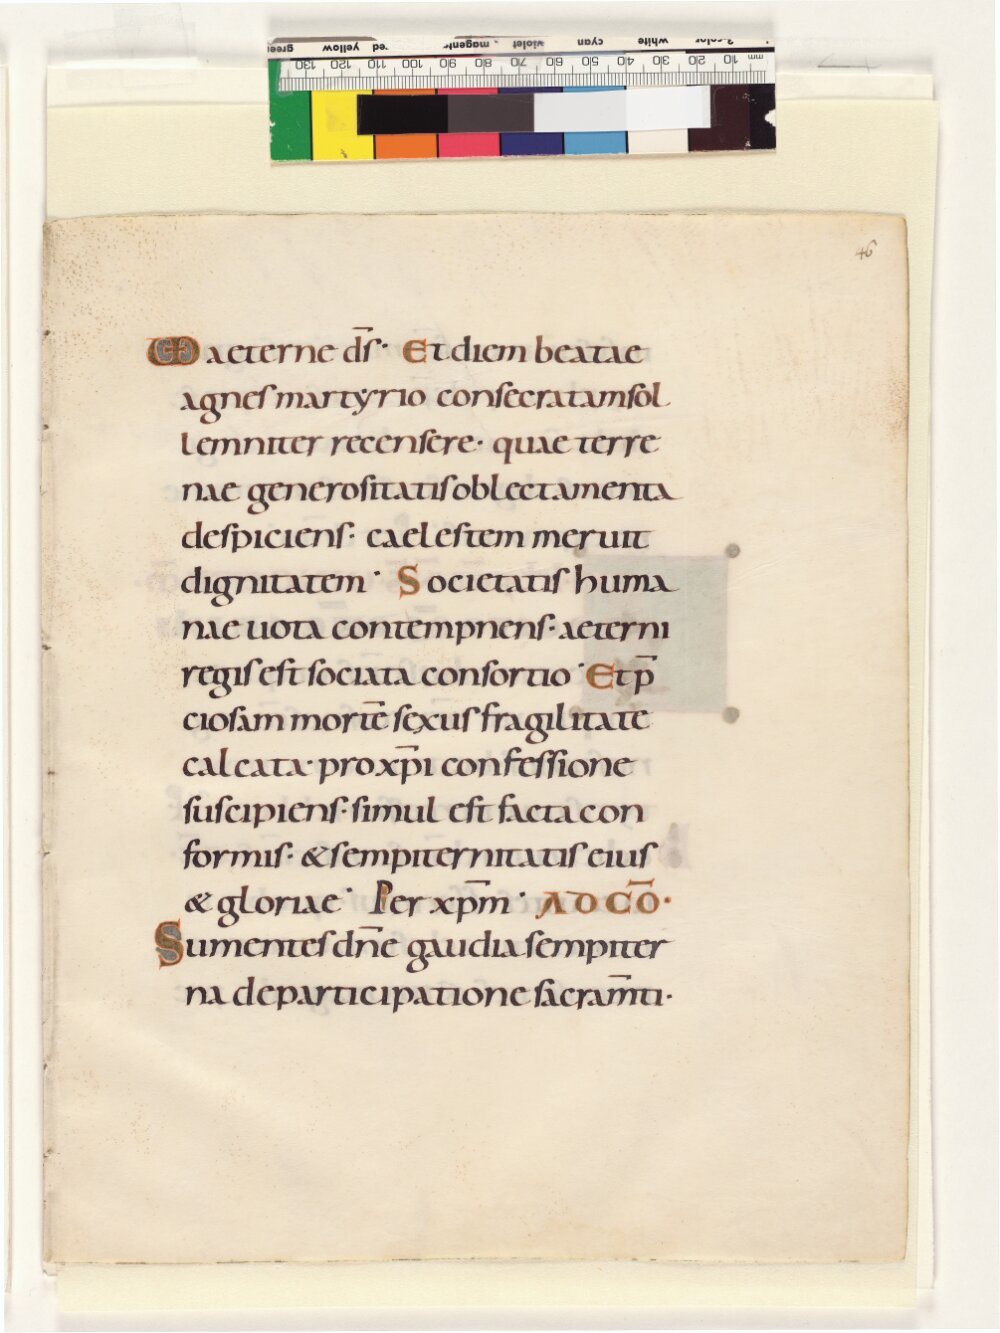 green yellow red magenta violet cyan white 3-color
130 120 110 100 90 80 70 60 50 40 30 20 10 mm
46
UD aeterne dſ̄· Et diem beatae
agneſ martẏrio conſecratam ſol
lemniter recenſere· quae terre
nae generoſitatiſ oblectamenta
deſpicienſ· caeleſtem meruit
dignitatem· Societatiſ huma
nae uota contempnenſ· aeterni
regiſ eſt ſociata conſortio· Et p̄
cioſam mortē ſexuſ fragilitate
calcata· pro xp̄i confeſſione
ſuſcipienſ· ſimul eſt facta con
formiſ· & ſempiternitatiſ eiuſ
& gloriae· Per xp̄m· AD CŌ·
Sumenteſ dn̄e gaudia ſempiter
na de participatione ſacram̄ti·